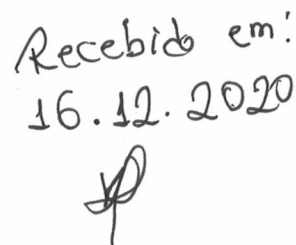 Recebido em:
16.12.2020